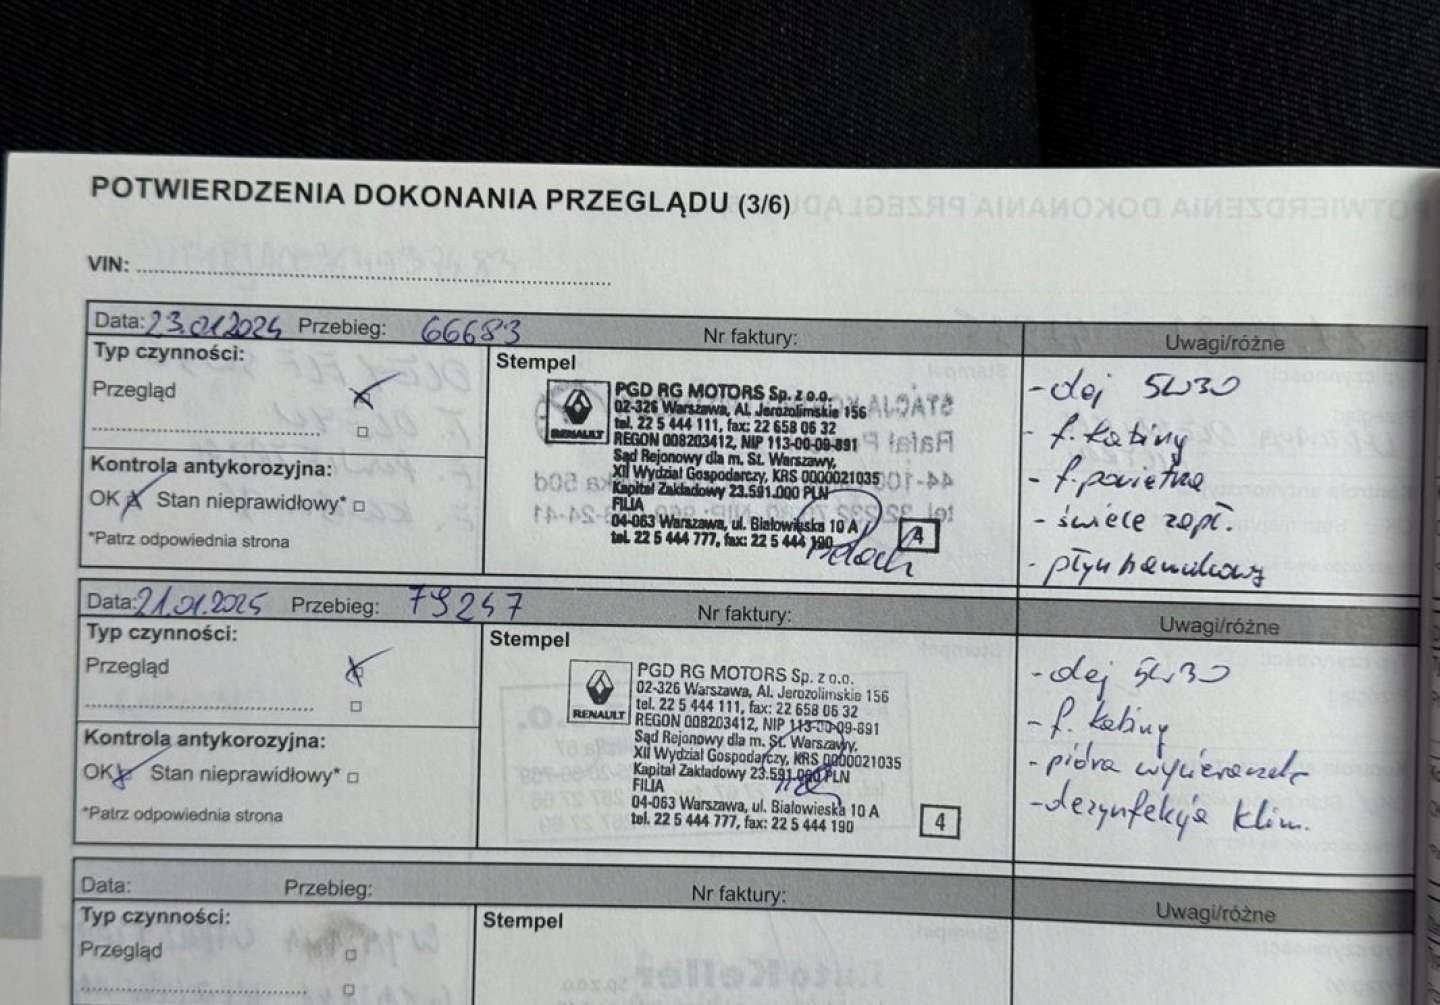 POTWIERDZENIA DOKONANIA PRZEGLĄDU (3/6)
VIN:
Data: 23.01.2024 Przebieg: 66683 Nr faktury: Uwagi/różne
Typ czynności:
Przegląd
Kontrola antykorozyjna:
OK Stan nieprawidłowy*
*Patrz odpowiednia strona
Stempel
RENAULT
PGD RG MOTORS Sp. z o.o.
02-326 Warszawa, Al. Jerozolimskie 156
tel. 22 5 444 111, fax: 22 658 06 32
REGON 008203412, NIP 113-00-09-891
Sąd Rejonowy dla m. St. Warszawy,
XII Wydział Gospodarczy, KRS 0000021035
Kapitał Zakładowy 23.591.000 PLN
FILIA
04-063 Warszawa, ul. Białowieska 10 A
tel. 22 5 444 777, fax: 22 5 444 190
4
- olej 5W30
- f. kabiny
- f. powietrza
- świece zapł.
- płyn hamulcowy
Data: 21.01.2025 Przebieg: 79247 Nr faktury: Uwagi/różne
Typ czynności:
Przegląd
Kontrola antykorozyjna:
OK Stan nieprawidłowy*
*Patrz odpowiednia strona
Stempel
RENAULT
PGD RG MOTORS Sp. z o.o.
02-326 Warszawa, Al. Jerozolimskie 156
tel. 22 5 444 111, fax: 22 658 06 32
REGON 008203412, NIP 113-00-09-891
Sąd Rejonowy dla m. St. Warszawy,
XII Wydział Gospodarczy, KRS 0000021035
Kapitał Zakładowy 23.591.000 PLN
FILIA
04-063 Warszawa, ul. Białowieska 10 A
tel. 22 5 444 777, fax: 22 5 444 190
4
- olej 5W30
- f. kabiny
- pióra wycieraczek
- dezynfekcja klim.
Data: Przebieg: Nr faktury: Uwagi/różne
Typ czynności:
Przegląd
Stempel